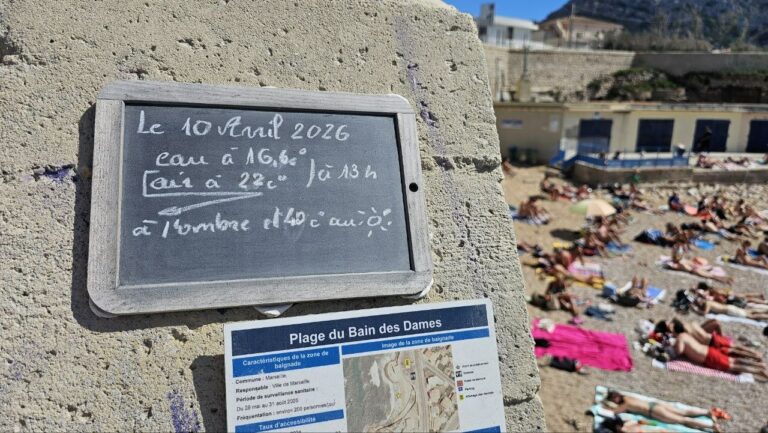 Le 10 Avril 2026
eau à 16,6c° } à 13 h
air à 22c°
à l'ombre et 40c° au
Plage du Bain des Dames
Caractéristiques de la zone de baignade
Commune : Marseille
Responsable : Ville de Marseille
Période de surveillance sanitaire :
Du 28 mai au 31 août 2025
Fréquentation : environ 200 personnes/jour
Taux d'accessibilité
Image de la zone de baignade